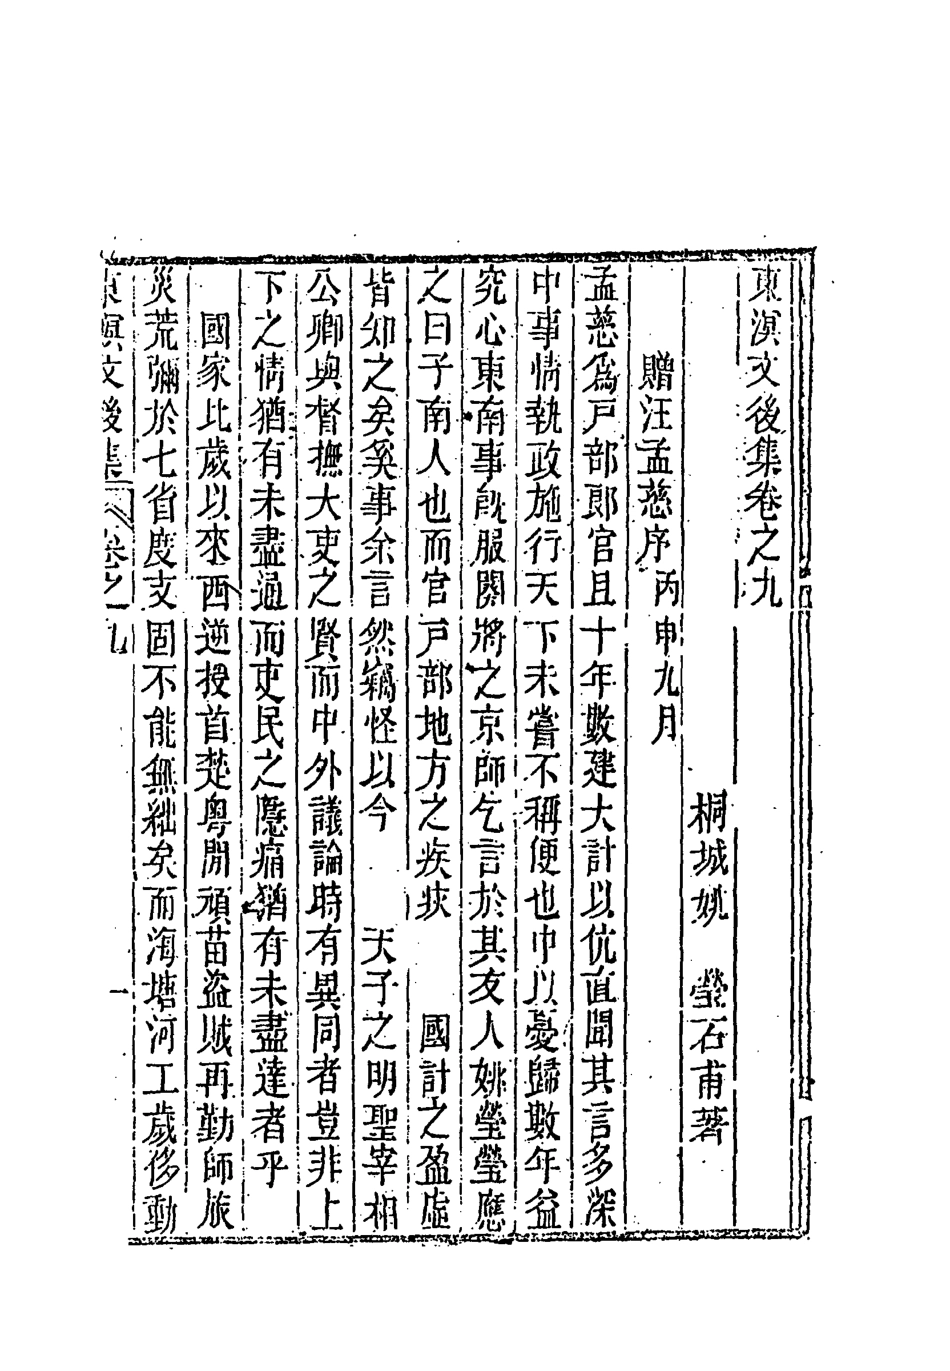 東溟文後集卷之九
桐城姚　瑩石甫著
贈汪孟慈序丙申九月
孟慈爲戸部郎官且十年數建大計以伉直聞其言多深
中事情執政施行天下未嘗不稱便也中以憂歸數年益
究心東南事旣服闋將之京師乞言於其友人姚瑩瑩應
之曰子南人也而官戸部地方之疾疚　國計之盈虛
皆知之矣奚事余言然竊怪以今　天子之明聖宰相
公卿與督撫大吏之賢而中外議論時有異同者豈非上
下之情猶有未盡通而吏民之隱痛猶有未盡達者乎
國家比歲以來西逆授首楚粤閒頑苗盜賊再勤師旅
災荒彌於七省度支固不能無絀矣而海塘河工歲侈動
東溟文後集　卷之九　一